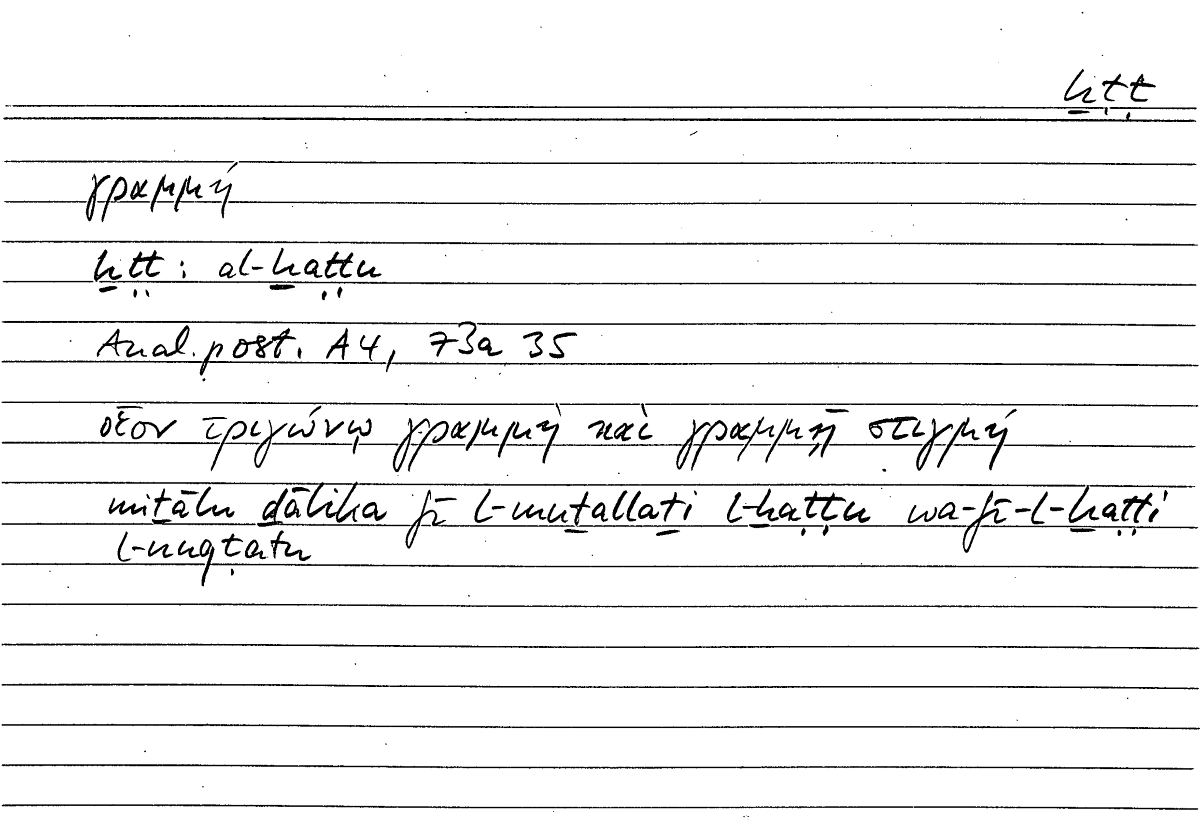 ḫṭṭ
γραμμή
ḫṭṭ : al-ḫaṭṭu
Anal. post. A4, 73a 35
οἷον τριγώνῳ γραμμὴ καὶ γραμμῇ στιγμή
miṯālu ḏālika fī l-muṯallaṯi l-ḫaṭṭu wa-fī-l-ḫaṭṭi
l-nuqṭatu